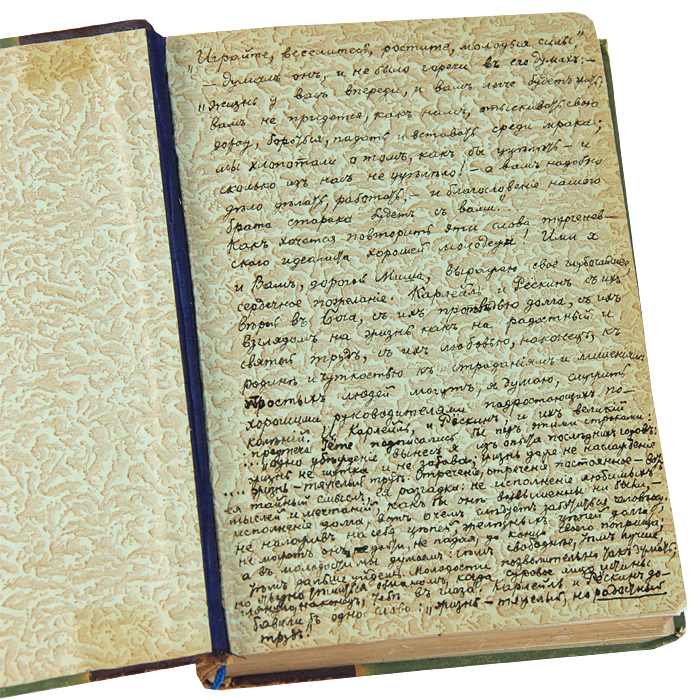 „Играйте, веселитесь, ростите, молодыя силы"
– думалъ онъ, и не было горечи въ его думахъ: –
„Жизнь у васъ впереди, и вамъ легче будетъ жить:
вамъ не придется, какъ намъ, отыскивать свою
дорогу, бороться, падать и вставать среди мрака;
мы хлопотали о томъ, какъ бы уцѣлѣть – и
сколько изъ насъ не уцѣлѣло! – а вамъ надобно
дѣло дѣлать, работать, – и благословение нашего
брата старика будетъ съ вами."
Какъ хочется повторить эти слова тургенев-
скаго идеалиста хорошей молодежи! Ими я
и Вамъ, дорогой Миша, выражаю свое глубочайшее,
сердечное пожелание. Карлейль и Рескинъ съ ихъ
вѣрой въ Бога, съ ихъ проповѣдью долга, съ ихъ
взглядомъ на жизнь какъ на радостный и
святой трудъ, съ ихъ любовью, наконецъ, къ
родинѣ и чуткостью къ страданіямъ и лишеніямъ
простыхъ людей могутъ, я думаю, служить
хорошими руководителями подростающихъ по-
колѣній. Карлейль, и Рескинъ и ихъ великій
предтеча Гёте подписались бы подъ этими строками:
„... одно убѣжденіе вынесъ я изъ опыта послѣднихъ годовъ:
жизнь не шутка и не забава, жизнь даже не наслажденіе
.... жизнь – тяжелый трудъ. Отреченіе, отреченіе постоянное – вотъ
ея тайный смыслъ, ея разгадка: не исполненіе любимыхъ
мыслей и мечтаній, какъ бы они возвышенны ни были, –
исполненіе долга, вотъ о чемъ слѣдуетъ заботиться человѣку.
не наложивъ на себя цѣпей, желѣзныхъ цѣпей долга,
не можетъ онъ дойти, не падая, до конца своего поприща;
а въ молодости мы думаемъ: чѣмъ свободнѣе, тѣмъ лучше,
тѣмъ дальше уйдешь. Молодости позволительно такъ думать;
но стыдно тѣшиться обманомъ, когда суровое лицо истины
глянуло, наконецъ, тебѣ въ глаза". Карлейль и Рескинъ до-
бавили бъ одно слово: „жизнь – тяжелый, но радостный
трудъ".